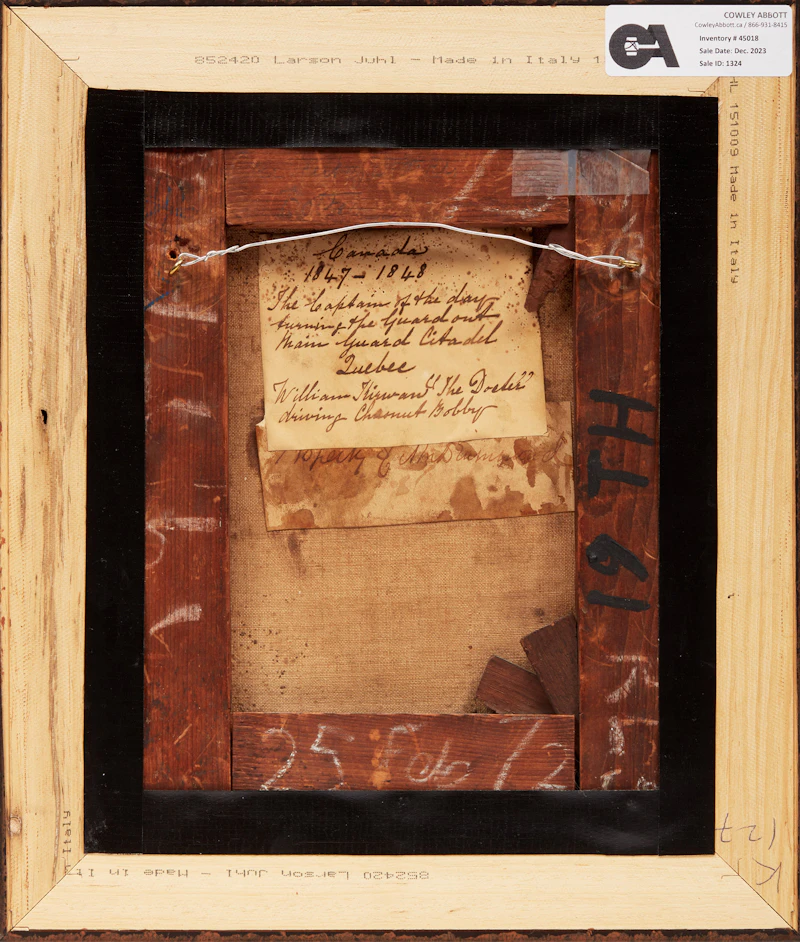 COWLEY ABBOTT
CowleyAbbott.ca / 866-931-8415
Inventory # 45018
Sale Date: Dec. 2023
Sale ID: 1324
CA
852420 Larson Juhl - Made in Italy 1
HL 151009 Made in Italy
Canada
1847 - 1848
The Captain of the day
turning the Guard out
Main Guard Citadel
Quebec
William Kirwan "The Doctor"
driving Chesnut Bobby
Property of
19 TH
25 Feb 72
K
127
852420 Larson Juhl - Made in It
Italy